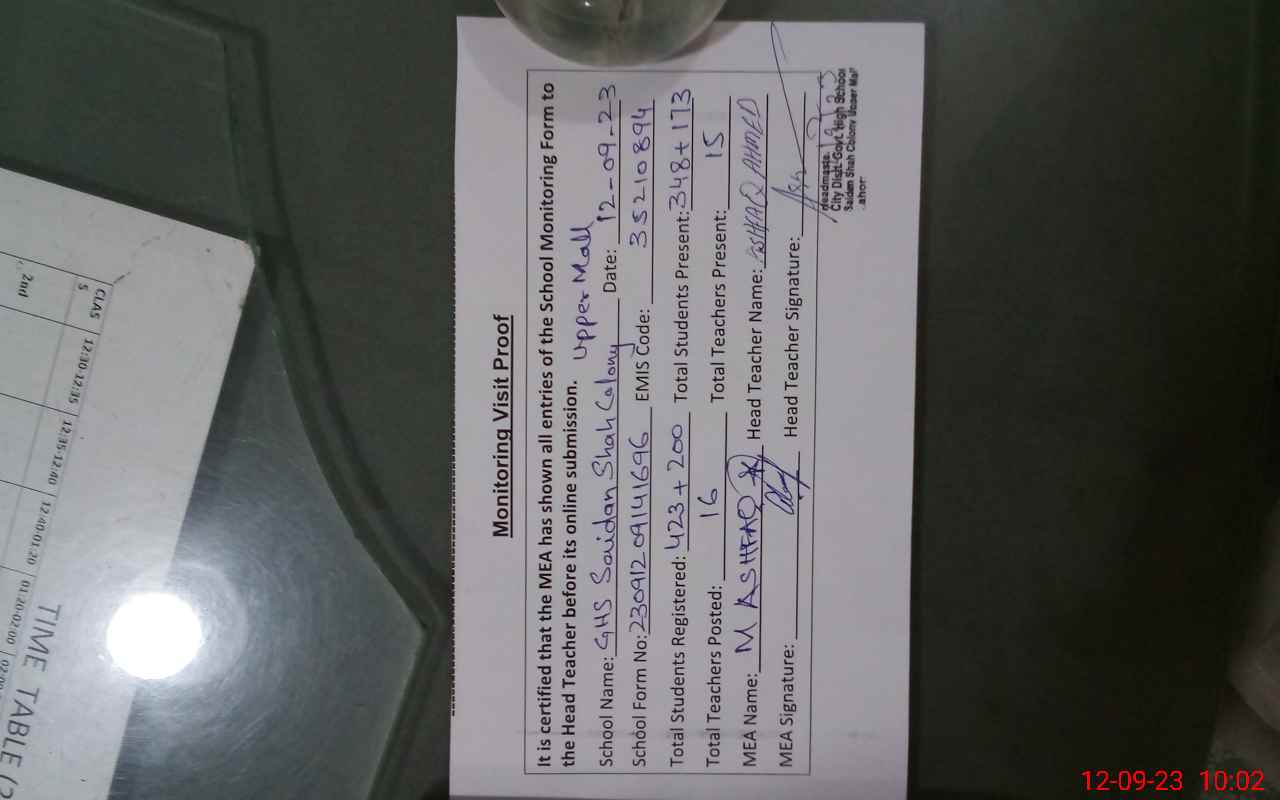 Monitoring Visit Proof
It is certified that the MEA has shown all entries of the School Monitoring Form to
the Head Teacher before its online submission.
Upper Mall
School Name: GHS Saidan Shah Colony Date: 12-09-23
School Form No: 23091209141696 EMIS Code: 35210894
Total Students Registered: 423+200 Total Students Present: 348+173
Total Teachers Posted: 16 Total Teachers Present: 15
MEA Name: M ASHFAQ Head Teacher Name: ASHFAQ AHMED
MEA Signature: Head Teacher Signature:
City Distt. Govt. High School
Saidan Shah Colony Upper Mall
CLAS
S
12:30-12:35
12:35-12:40
12:40-01:20
01:20-02:00
2nd
TIME TABLE (2
12-09-23 10:02